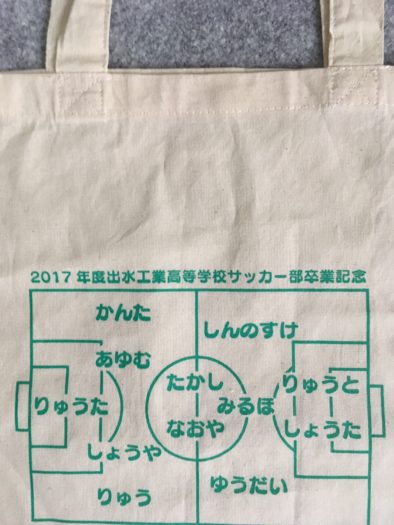 2017年度出水工業高等学校サッカー部卒業記念
かんた
しんのすけ
あゆむ
たかし
りゅうと
りゅうた
みるほ
なおや
しょうた
しょうや
りゅう
ゆうだい